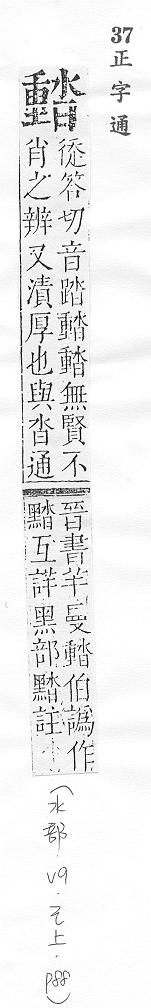 37 正字通
濌
徒答切音踏濌濌無賢不
肖之辨又漬厚也與沓通
晉書羊曼濌伯譌作
䵬互詳黑部䵬註
(水部．v9．巳上．p88)